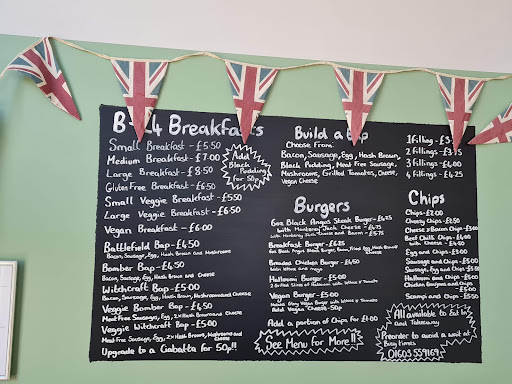 Breakfasts
Small Breakfast - £5·50
Medium Breakfast - £7·00
Large Breakfast - £8·50
Gluten Free Breakfast - £6·50
Small Veggie Breakfast - £5·50
Large Veggie Breakfast - £6·50
Vegan Breakfast - £6·00
Battlefield Bap - £4·50
Bacon, Sausage, Egg, Hash Brown and Mushrooms
Bomber Bap - £4·50
Bacon, Sausage, Egg, Hash Brown and Cheese
Witchcraft Bap - £5·00
Bacon, Sausage, Egg, Hash Brown, Mushrooms and Cheese
Veggie Bomber Bap - £4·50
Meat Free Sausage, Egg, 2x Hash Browns and Cheese
Veggie Witchcraft Bap - £5·00
Meat Free Sausage, Egg, 2x Hash Brown, Mushrooms and Cheese
Upgrade to a Ciabatta for 50p!!
Add
Black
Pudding
for 50p!
Build a Bap
Choose From:
Bacon, Sausage, Egg, Hash Brown,
Black Pudding, Meat Free Sausage,
Mushrooms, Grilled Tomatoes, Cheese,
Vegan Cheese
1 Filling - £3
2 Fillings - £3·
3 Fillings - £4·00
4 Fillings - £4·25
Burgers
6oz Black Angus Steak Burger - £4·25
with Monterey Jack Cheese - £4·75
with Monterey Jack Cheese and Bacon - £5·75
Breakfast Burger - £6·25
6oz Black Angus Steak Burger, Bacon, Fried Egg, Hash Brown
Cheese
Breaded Chicken Burger - £4·50
with lettuce and mayo
Halloumi Burger - £5·00
2 Grilled Slices of Halloumi with lettuce & Tomato
Vegan Burger - £5·00
Vegan Burger with lettuce & Tomato
Add Vegan Cheese - 50p
Add a portion of Chips for £1·00
See Menu for More!!
Chips
Chips - £2·00
Cheesy Chips - £2·50
Cheese & Bacon Chips - £3·00
Beef Chilli Chips - £4·00
with Cheese - £4·50
Egg and Chips - £3·00
Sausage and Chips - £5·00
Sausage, Egg and Chips - £5·50
Halloumi and Chips - £5·00
Chicken Goujons and
Chips
£5·00
Scampi and Chips - £5·50
All available to Eat In
and Takeaway
Preorder to avoid a wait at
Busy times
01603 559169